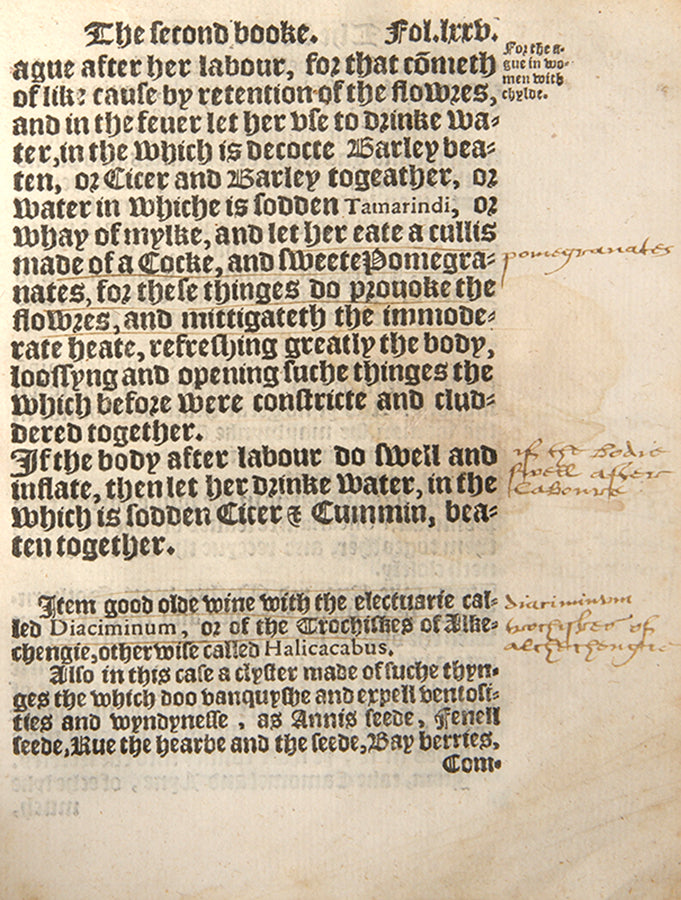 The second booke. Fol.lxxv.
For the a-
gue in wo-
men with
chylde.
ague after her labour, for that cōmeth
of like cause by retention of the flowres,
and in the feuer let her vse to drinke wa-
ter, in the which is decocte Barley bea-
ten, or Cicer and Barley togeather, or
water in whiche is sodden Tamarindi, or
whay of mylke, and let her eate a cullis
made of a Cocke, and sweete Pomegra-
pomegranates
nates, for these thinges do prouoke the
flowres, and mittigateth the immode-
rate heate, refreshing greatly the body,
loossyng and opening suche thinges the
which before were constricte and clud-
dered together.
If the body after labour do swell and
if the bodie
swell after
laboure
inflate, then let her drinke water, in the
which is sodden Cicer & Cummin, bea-
ten together.
Item good olde wine with the electuarie cal-
diaciminum
trochiskes of
alchechengie
led Diaciminum, or of the Trochiskes of Alke-
chengie, otherwise called Halicacabus.
Also in this case a clyster made of suche thyn-
ges the which doo vanquyshe and expell ventosi-
ties and wyndynesse, as Annis seede, Fenell
seede, Rue the hearbe and the seede, Bay berries,
Com-